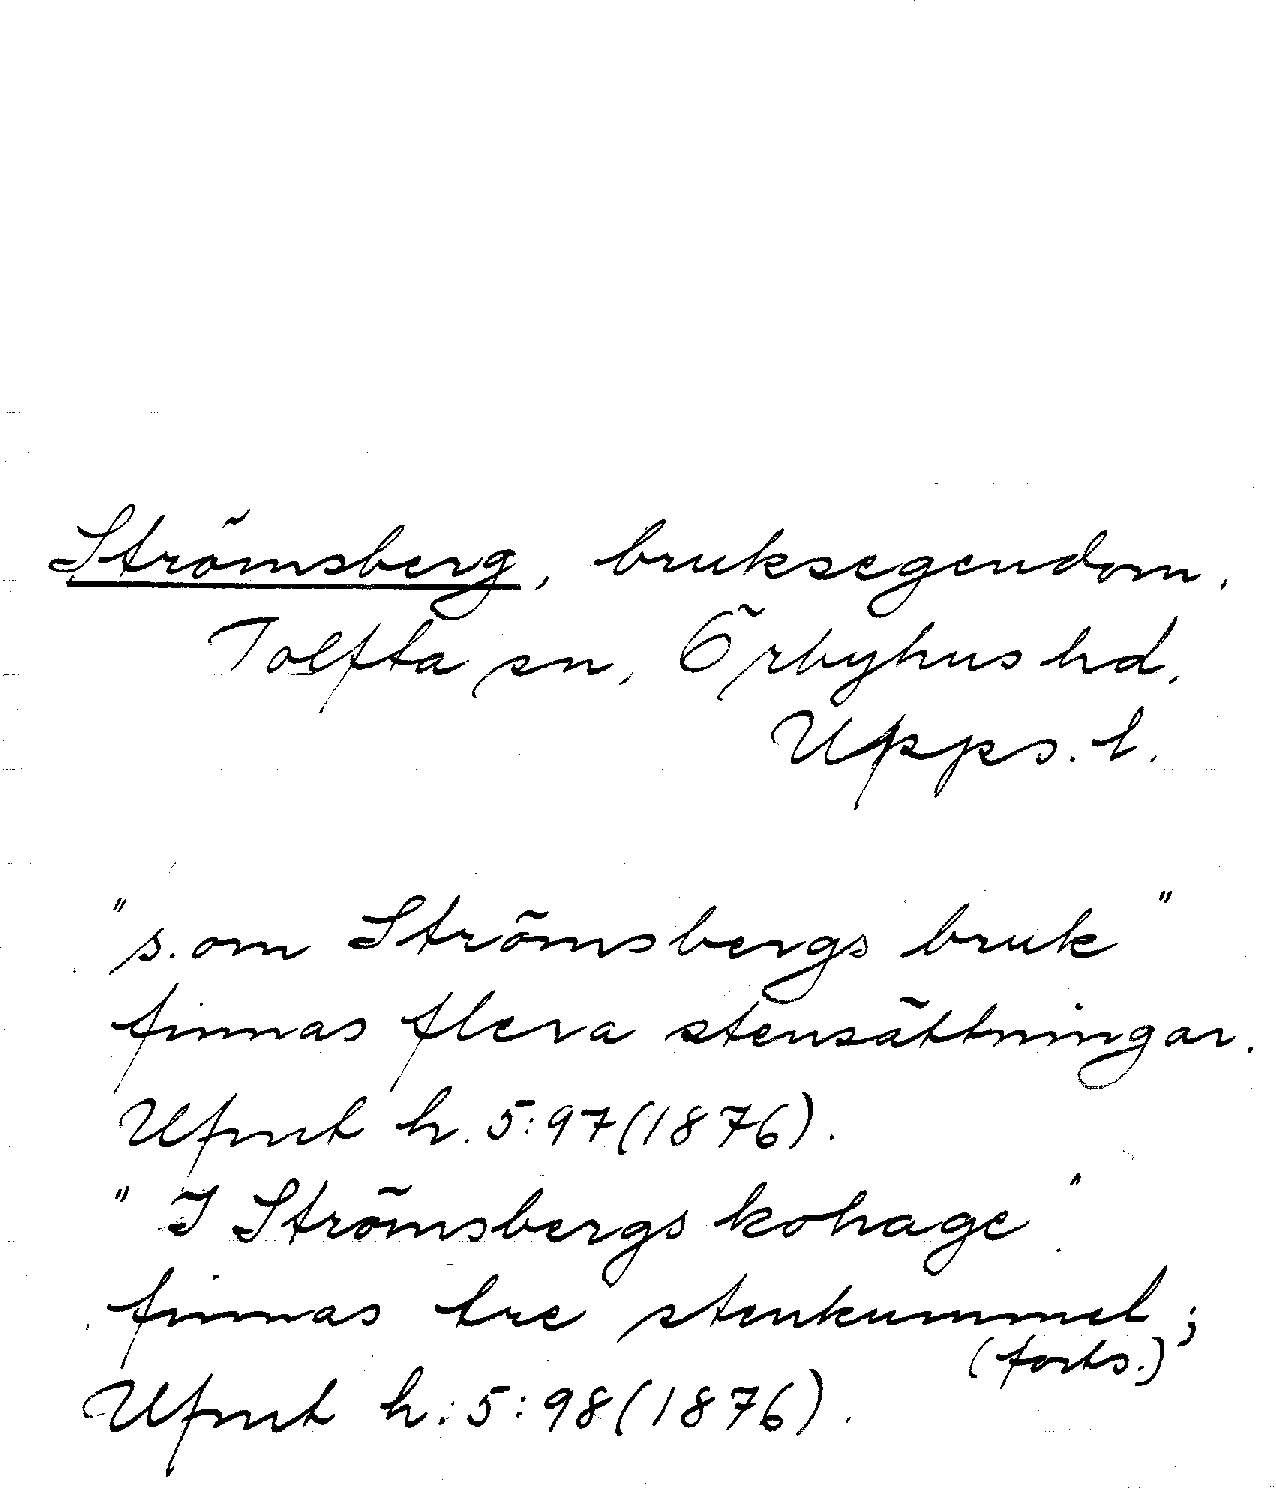 Strömsberg, bruksegendom.
Tolfta sn, Örbyhus hd.
Upps. l.
"s. om Strömsbergs bruk"
finnas flera stensättningar.
Ufmt h. 5:97(1876).
"I Strömsbergs kohage"
finnas tre stenkummel;
(forts.)
Ufmt h. 5:98(1876).